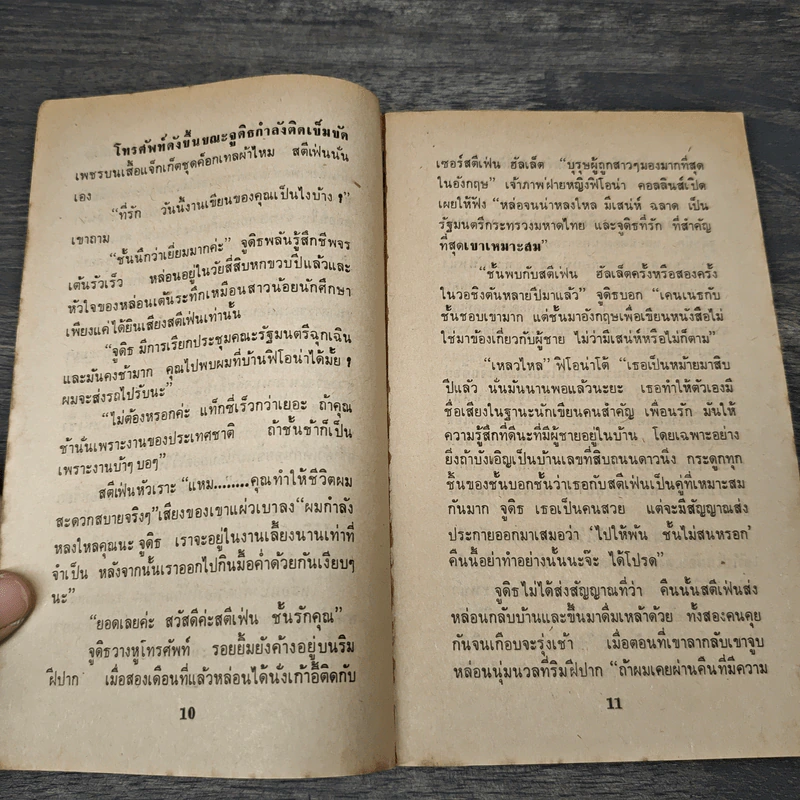 โทรศัพท์ดังขึ้นขณะจูดิธกำลังติดเข็มขัด
เพชรบนเสื้อแจ็กเก็ตชุดค็อกเทลผ้าไหม สตีเฟ่นนั่น
เอง
“ที่รัก วันนี้งานเขียนของคุณเป็นไงบ้าง ?”
เขาถาม
“ชั้นนึกว่าเยี่ยมมากค่ะ” จูดิธพลันรู้สึกชีพจร
เต้นรัวเร็ว หล่อนอยู่ในวัยสี่สิบหกขวบปีแล้วและ
หัวใจของหล่อนเต้นระทึกเหมือนสาวน้อยนักศึกษา
เพียงแค่ได้ยินเสียงสตีเฟ่นเท่านั้น
“จูดิธ มีการเรียกประชุมคณะรัฐมนตรีฉุกเฉิน
และมันคงช้ามาก คุณไปพบผมที่บ้านฟิโอน่าได้มั้ย ?
ผมจะส่งรถไปรับนะ”
“ไม่ต้องหรอกค่ะ แท็กซี่เร็วกว่าเยอะ ถ้าคุณ
ช้านั่นเพราะงานของประเทศชาติ ถ้าชั้นช้าก็เป็น
เพราะงานบ้าๆ บอๆ”
สตีเฟ่นหัวเราะ “แหม........คุณทำให้ชีวิตผม
สะดวกสบายจริงๆ”เสียงของเขาแผ่วเบาลง“ผมกำลัง
หลงใหลคุณนะ จูดิธ เราจะอยู่ในงานเลี้ยงนานเท่าที่
จำเป็น หลังจากนั้นเราออกไปกินมื้อค่ำด้วยกันเงียบๆ
นะ”
“ยอดเลยค่ะ สวัสดีค่ะสตีเฟ่น ชั้นรักคุณ”
จูดิธวางหูโทรศัพท์ รอยยิ้มยังค้างอยู่บนริม
ฝีปาก เมื่อสองเดือนที่แล้วหล่อนได้นั่งเก้าอี้ติดกับ
10
เซอร์สตีเฟ่น ฮัลเล็ต “บุรุษผู้ถูกสาวๆมองมากที่สุด
ในอังกฤษ” เจ้าภาพฝ่ายหญิงฟิโอน่า คอลลินส์เปิด
เผยให้ฟัง “หล่อจนน่าหลงไหล มีเสน่ห์ ฉลาด เป็น
รัฐมนตรีกระทรวงมหาดไทย และจูดิธที่รัก ที่สำคัญ
ที่สุดเขาเหมาะสม”
“ชั้นพบกับสตีเฟ่น ฮัลเล็ตครั้งหรือสองครั้ง
ในวอชิงตันหลายปีมาแล้ว” จูดิธบอก “เคนเนธกับ
ชั้นชอบเขามาก แต่ชั้นมาอังกฤษเพื่อเขียนหนังสือไม่
ใช่มาข้องเกี่ยวกับผู้ชาย ไม่ว่ามีเสน่ห์หรือไม่ก็ตาม”
“เหลวไหล” ฟิโอน่าโต้ “เธอเป็นหม้ายมาสิบ
ปีแล้ว นั่นมันนานพอแล้วนะยะ เธอทำให้ตัวเองมี
ชื่อเสียงในฐานะนักเขียนคนสำคัญ เพื่อนรัก มันให้
ความรู้สึกที่ดีนะที่มีผู้ชายอยู่ในบ้าน โดยเฉพาะอย่าง
ยิ่งถ้าบังเอิญเป็นบ้านเลขที่สิบถนนดาวนิ่ง กระดูกทุก
ชิ้นของชั้นบอกชั้นว่าเธอกับสตีเฟ่นเป็นคู่ที่เหมาะสม
กันมาก จูดิธ เธอเป็นคนสวย แต่จะมีสัญญาณส่ง
ประกายออกมาเสมอว่า ‘ไปให้พ้น ชั้นไม่สนหรอก’
คืนนี้อย่าทำอย่างนั้นนะจ๊ะ ได้โปรด”
จูดิธไม่ได้ส่งสัญญาณที่ว่า คืนนั้นสตีเฟ่นส่ง
หล่อนกลับบ้านและขึ้นมาดื่มเหล้าด้วย ทั้งสองคนคุย
กันจนเกือบจะรุ่งเช้า เมื่อตอนที่เขาลากลับเขาจูบ
หล่อนนุ่มนวลที่ริมฝีปาก “ถ้าผมเคยผ่านคืนที่มีความ
11